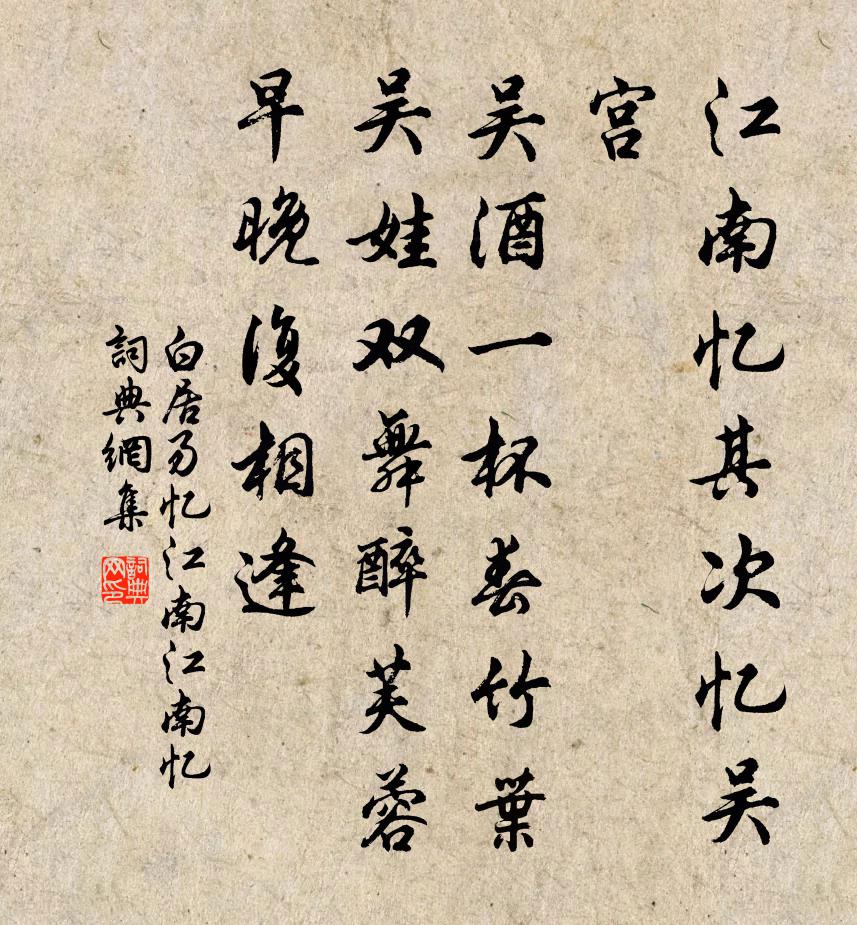 江南忆其次忆吴
宫
吴酒一杯春竹葉
吴娃双舞醉芙蓉
早晚復相逢
白居易忆江南江南忆
詞典網集
詞典网印